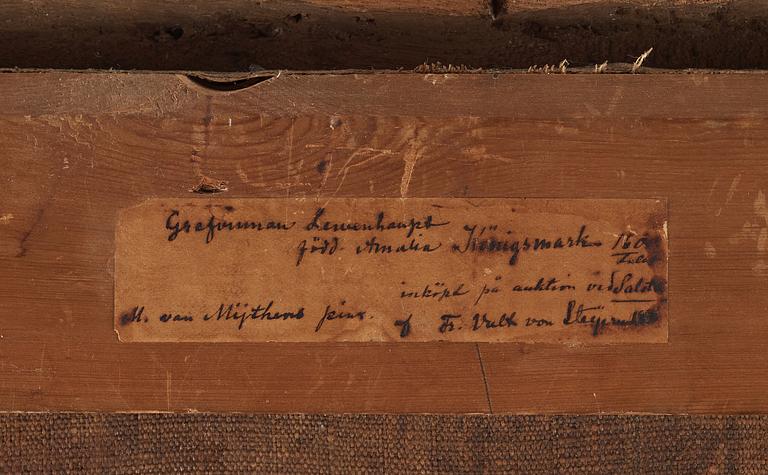 Grefvinnan Lewenhaupt
född Amalia Königsmark 160
inköpt på auktion vid
M. van Mijthens pinx. af Fr. Vult von Steijern